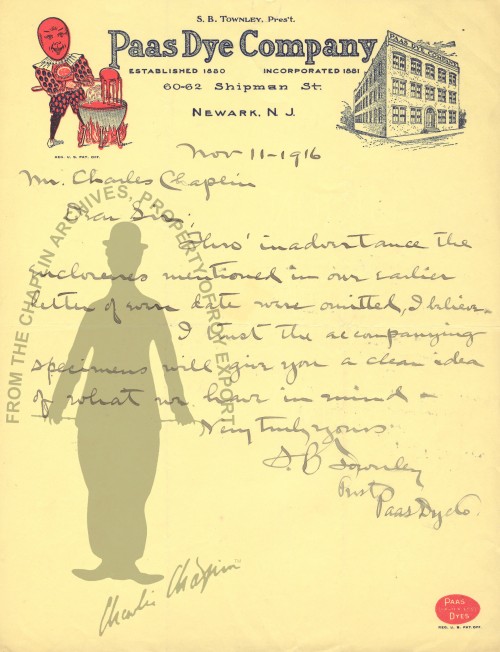 S. B. TOWNLEY, Pres't.
Paas Dye Company
ESTABLISHED 1880 INCORPORATED 1881
60-62 Shipman St.
NEWARK, N. J.
PAAS DYE COMPANY
REG. U. S. PAT. OFF.
Nov 11-1916
Mr. Charles Chaplin
Dear Sir;
Thro' inadvertance the
enclosures mentioned in our earlier
letter of even date were omitted, I believe.
I trust the accompanying
specimens will give you a clean idea
of what we have in mind &
Very truly yours
S. B. Townley
Prest
Paas Dye Co.
FROM THE CHAPLIN ARCHIVES, PROPERTY OF ROY EXPORT
Charlie Chaplin™
PAAS
DYES
REG. U. S. PAT. OFF.